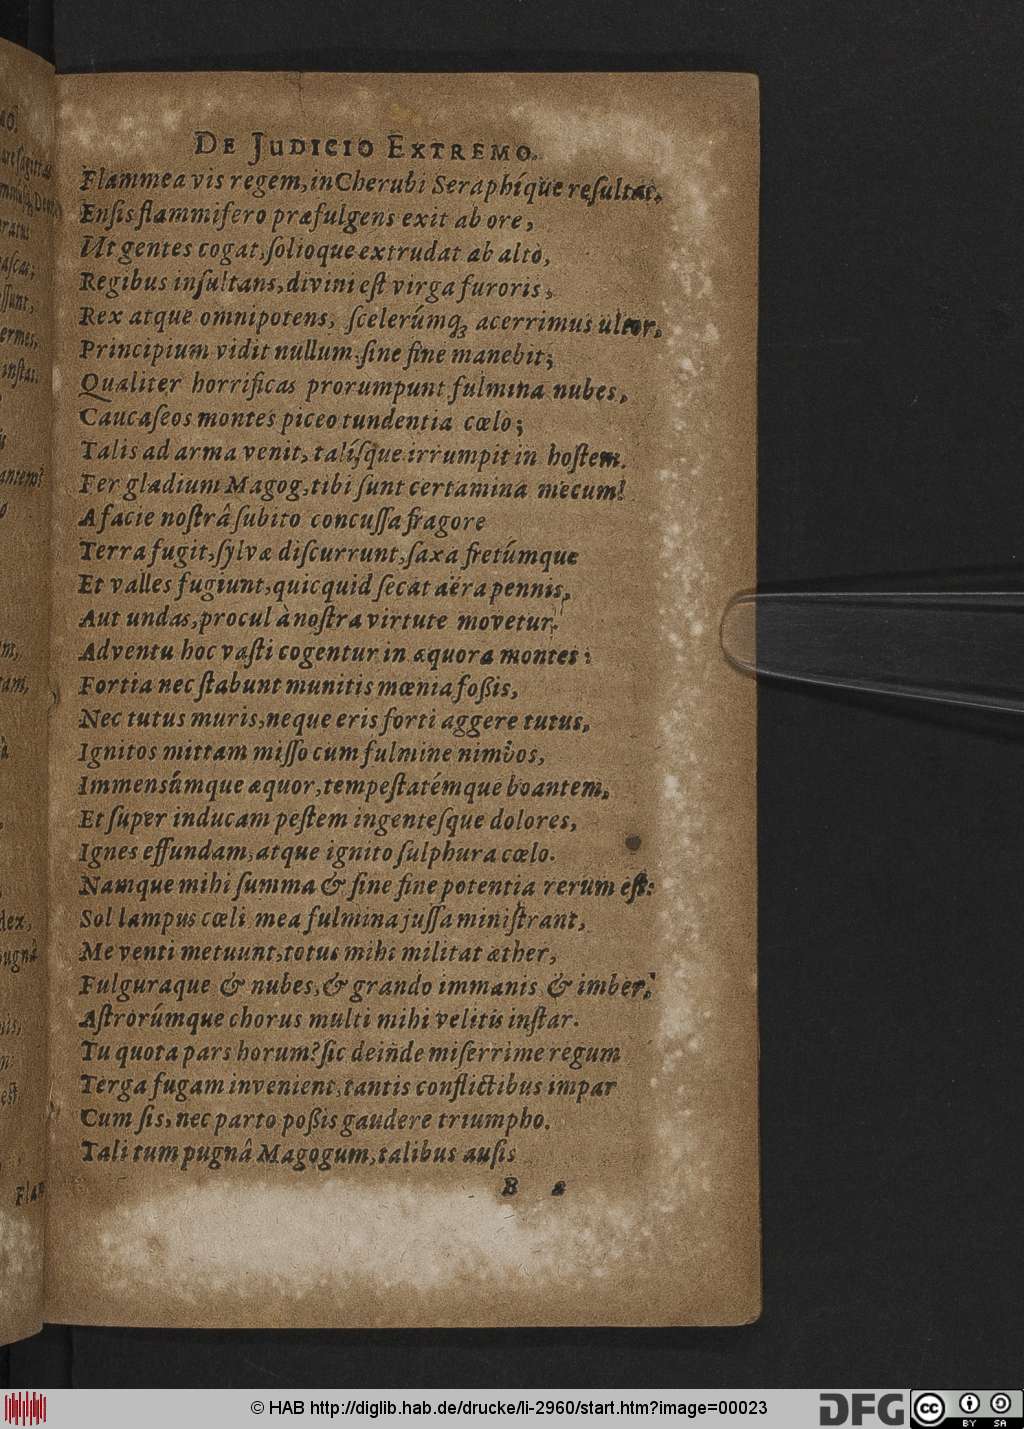 DE JUDICIO EXTREMO.
Flammea vis regem, in Cherubi Seraphíque reſultat,
Enſis flammifero præfulgens exit ab ore,
Ut gentes cogat, ſolioque extrudat ab alto,
Regibus inſultans, divini eſt virga furoris,
Rex atque omnipotens, ſcelerúmq; acerrimus ultor,
Principium vidit nullum, ſine fine manebit;
Qualiter horrificas prorumpunt fulmina nubes,
Caucaſeos montes piceo tundentia cœlo;
Talis ad arma venit, talíſque irrumpit in hoſtem.
Fer gladium Magog, tibi ſunt certamina mecum!
A facie noſtrâ ſubito concuſſa fragore
Terra fugit, ſylvæ diſcurrunt, ſaxa fretúmque
Et valles fugiunt, quicquid ſecat aëra pennis,
Aut undas, procul à noſtra virtute movetur.
Adventu hoc vaſti cogentur in æquora montes:
Fortia nec ſtabunt munitis mœnia foßis,
Nec tutus muris, neque eris forti aggere tutus,
Ignitos mittam miſſo cum fulmine nimbos,
Immensúmque æquor, tempeſtatémque boantem,
Et ſuper inducam peſtem ingenteſque dolores,
Ignes effundam, atque ignito ſulphura cœlo.
Namque mihi ſumma & ſine fine potentia rerum eſt:
Sol lampus cœli mea fulmina juſſa miniſtrant,
Me venti metuunt, totus mihi militat æther,
Fulguraque & nubes, & grando immanis & imber,
Aſtrorúmque chorus multi mihi velitis inſtar.
Tu quota pars horum? ſic deinde miſerrime regum
Terga fugam invenient, tantis conflictibus impar
Cum ſis, nec parto poßis gaudere triumpho.
Tali tum pugnâ Magogum, talibus auſis
B 2
© HAB http://diglib.hab.de/drucke/li-2960/start.htm?image=00023
DFG
cc
BY SA